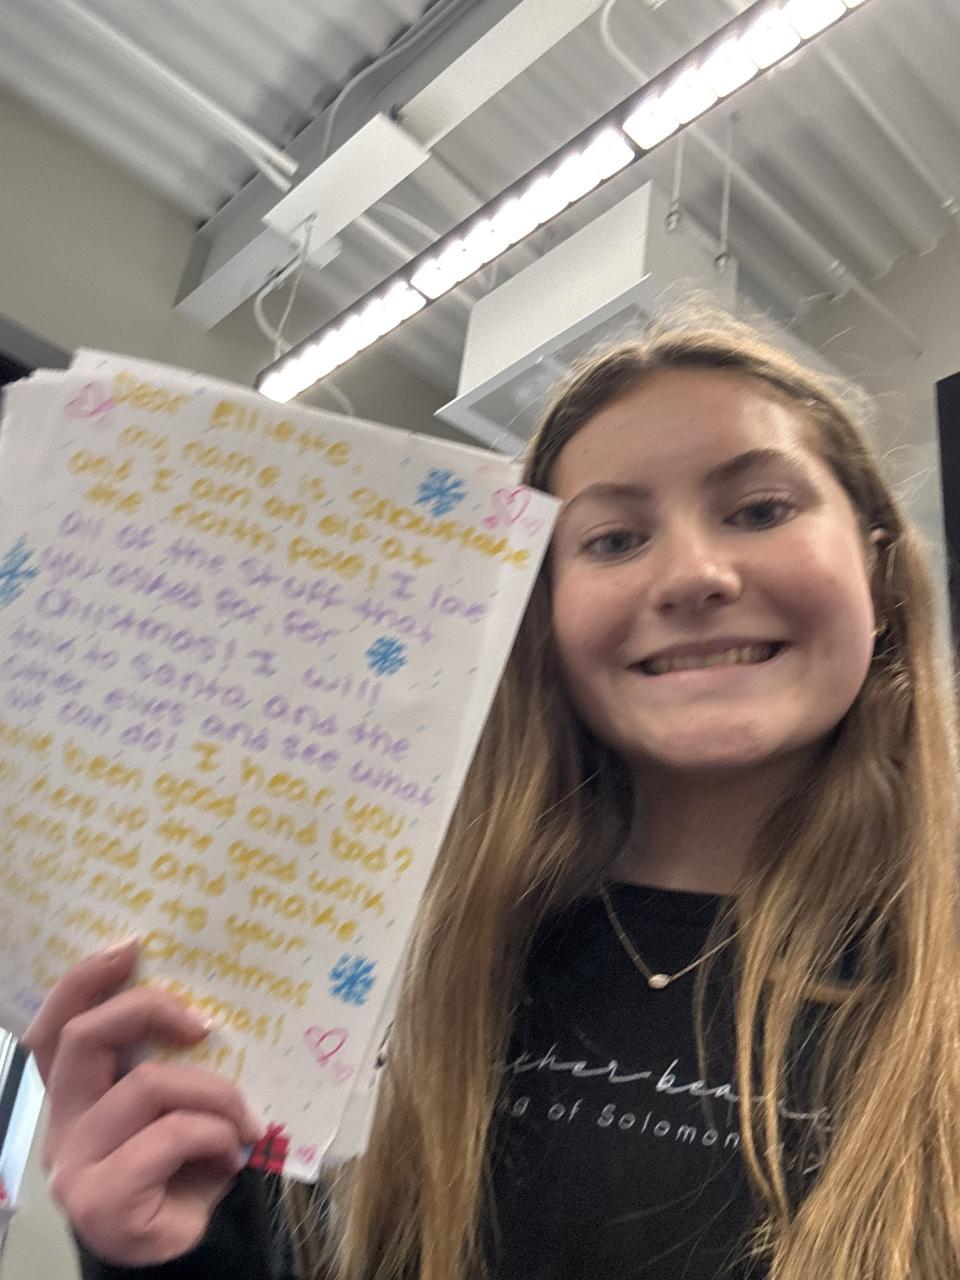 Dear Elliette,
my name is, Snowflake
and I am an elf at
the north pole! I love
all of the stuff that
you asked for, for
Christmas! I will
talk to Santa, and the
other elves and see what
we can do! I hear, you
have been good and bad?
keep up the good work
being good and make
your nice to your
Christmas
ther bea
of Solomon